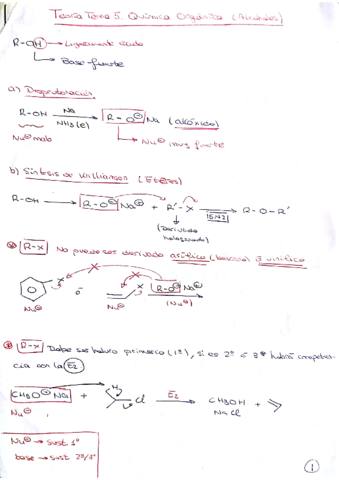 Teoría Tema 5. Química Orgánica (Alcoholes)
R-OH → Ligeramente ácido
Base fuerte
a) Desprotonación
R-OH Na NH3(l) → R-O⊖ Na (alcóxido)
Nu⊖ malo
Nu⊖ muy fuerte
b) Síntesis de Williamson (Éteres)
R-OH → R-O⊖ Na⊕ + R'-X SN2 → R-O-R'
(Derivado
halogenado)
R-X No puede ser derivado arílico (benceno) ó vinílico
X ó X R-O⊖ Na⊕
Nu⊖ Nu⊖ (Nu⊖)
R-X Debe ser haluro primario (1º), si es 2º ó 3º habrá competen
cia con la E2
CH3O⊖ Na + H Cl E2 → CH3OH +
Nu⊖ NaCl
Nu⊖ → sust 1º
base → sust 2º/3º
1